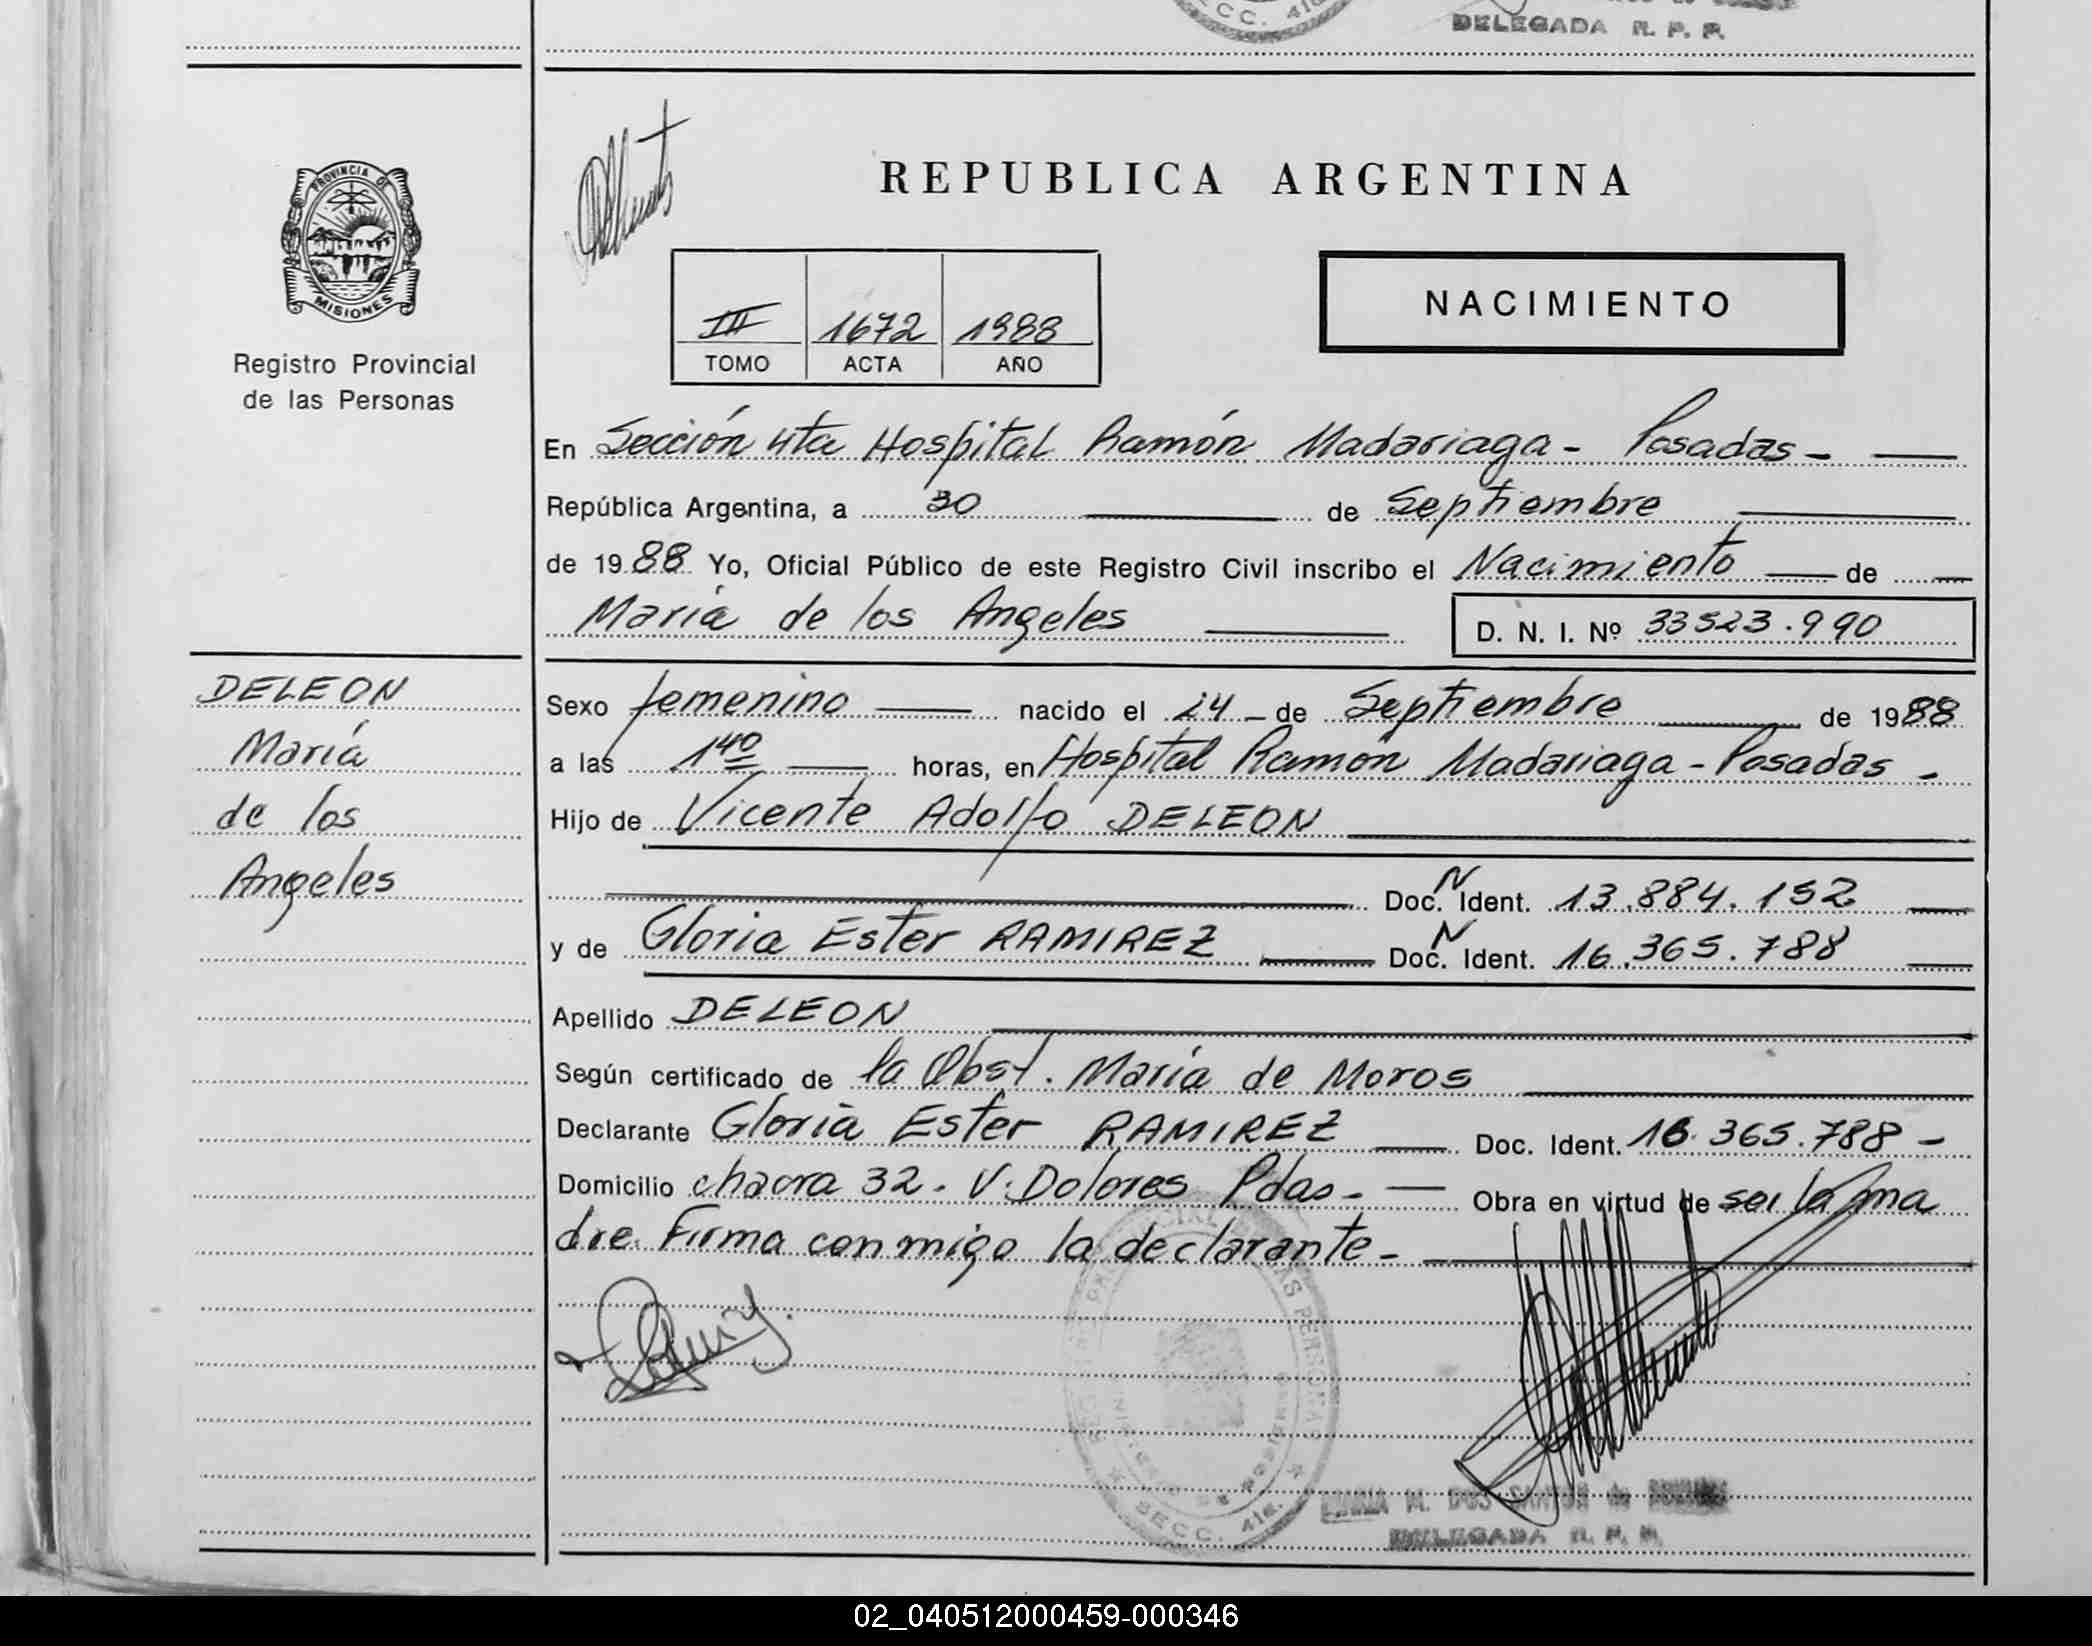 SECC. 4ta.
DELEGADA R. P. P.
PROVINCIA DE
MISIONES
Registro Provincial
de las Personas
REPUBLICA ARGENTINA
NACIMIENTO
III 1672 1988
TOMO ACTA AÑO
En Sección 4ta Hospital Ramón Madariaga - Posadas -
República Argentina, a 30 de Septiembre
de 1988 Yo, Oficial Público de este Registro Civil inscribo el Nacimiento de
María de los Angeles D. N. I. Nº 33523.990
DELEON
María
de los
Angeles
Sexo femenino nacido el 24 - de Septiembre de 1988
a las 140 horas, en Hospital Ramón Madariaga - Posadas -
Hijo de Vicente Adolfo DELEON
Doc. N Ident. 13.884.152
y de Gloria Ester RAMIREZ Doc. N Ident. 16.365.788
Apellido DELEON
Según certificado de la Obst. María de Moros
Declarante Gloria Ester RAMIREZ Doc. Ident. 16.365.788 -
Domicilio chacra 32 - V. Dolores Pdas - Obra en virtud de ser la ma
dre. Firma conmigo la declarante -
SECC. 4ta.
M. DOS SANTOS de
DELEGADA R. P. P.
02_040512000459-000346